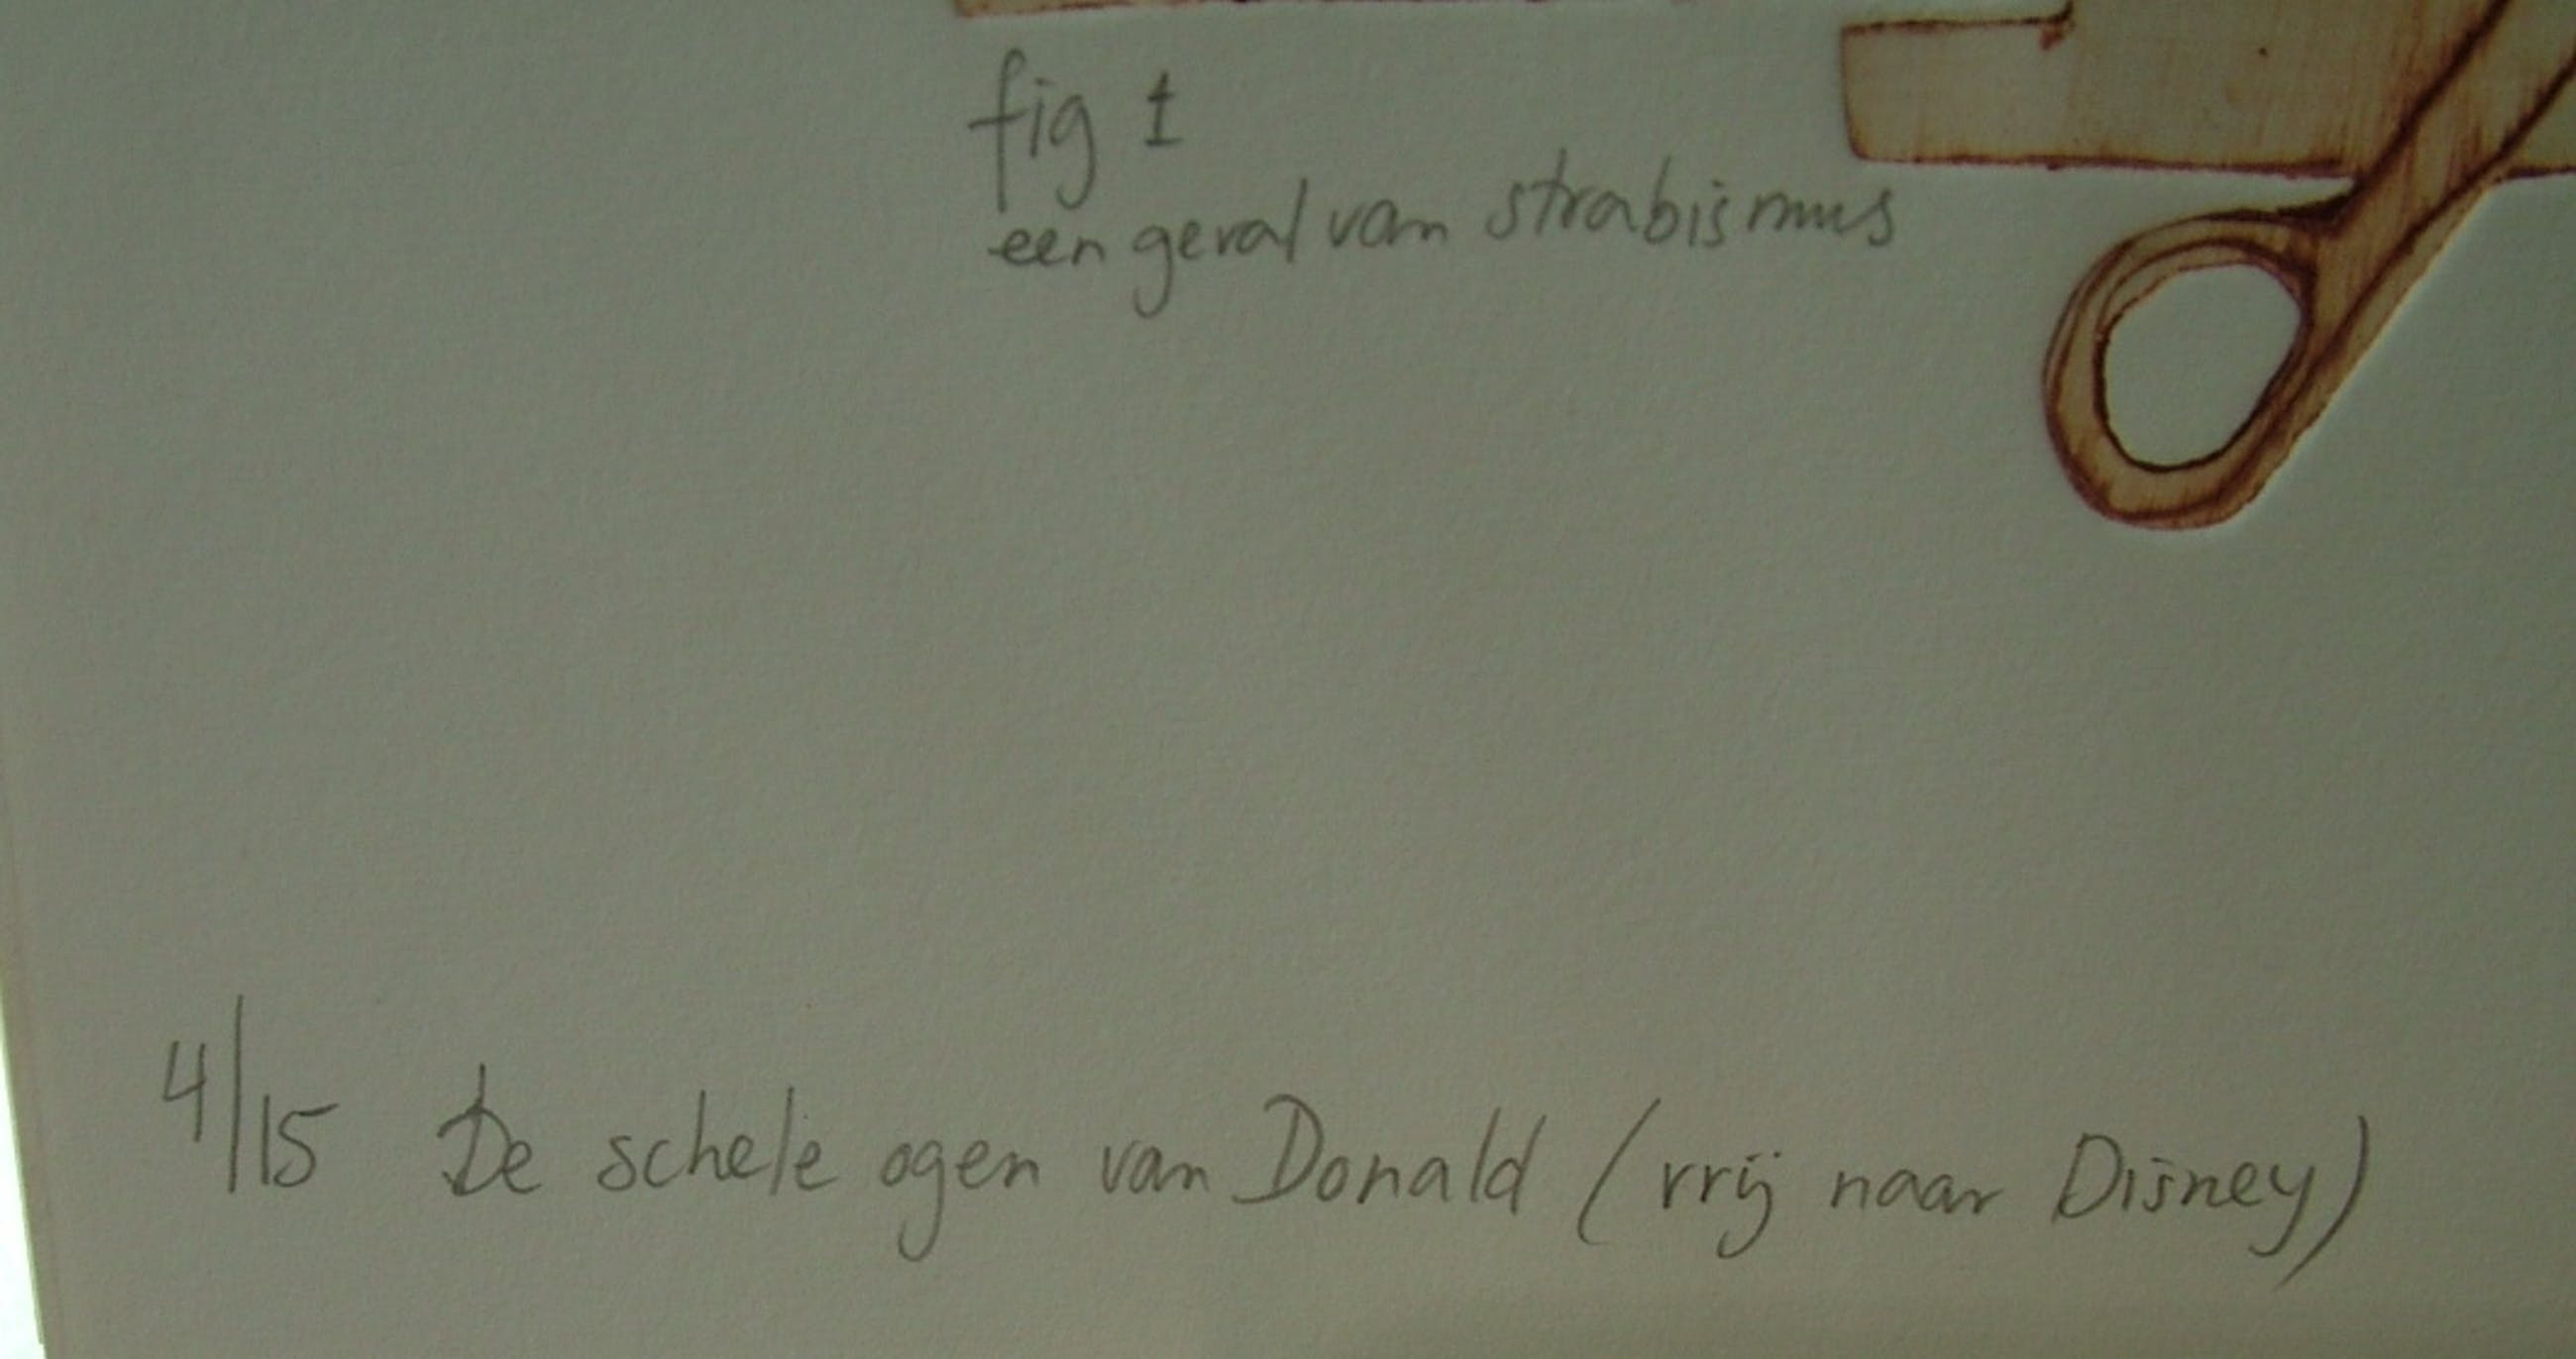 fig 1
een geval van strabismus
4/15 De schele ogen van Donald (vrij naar Disney)